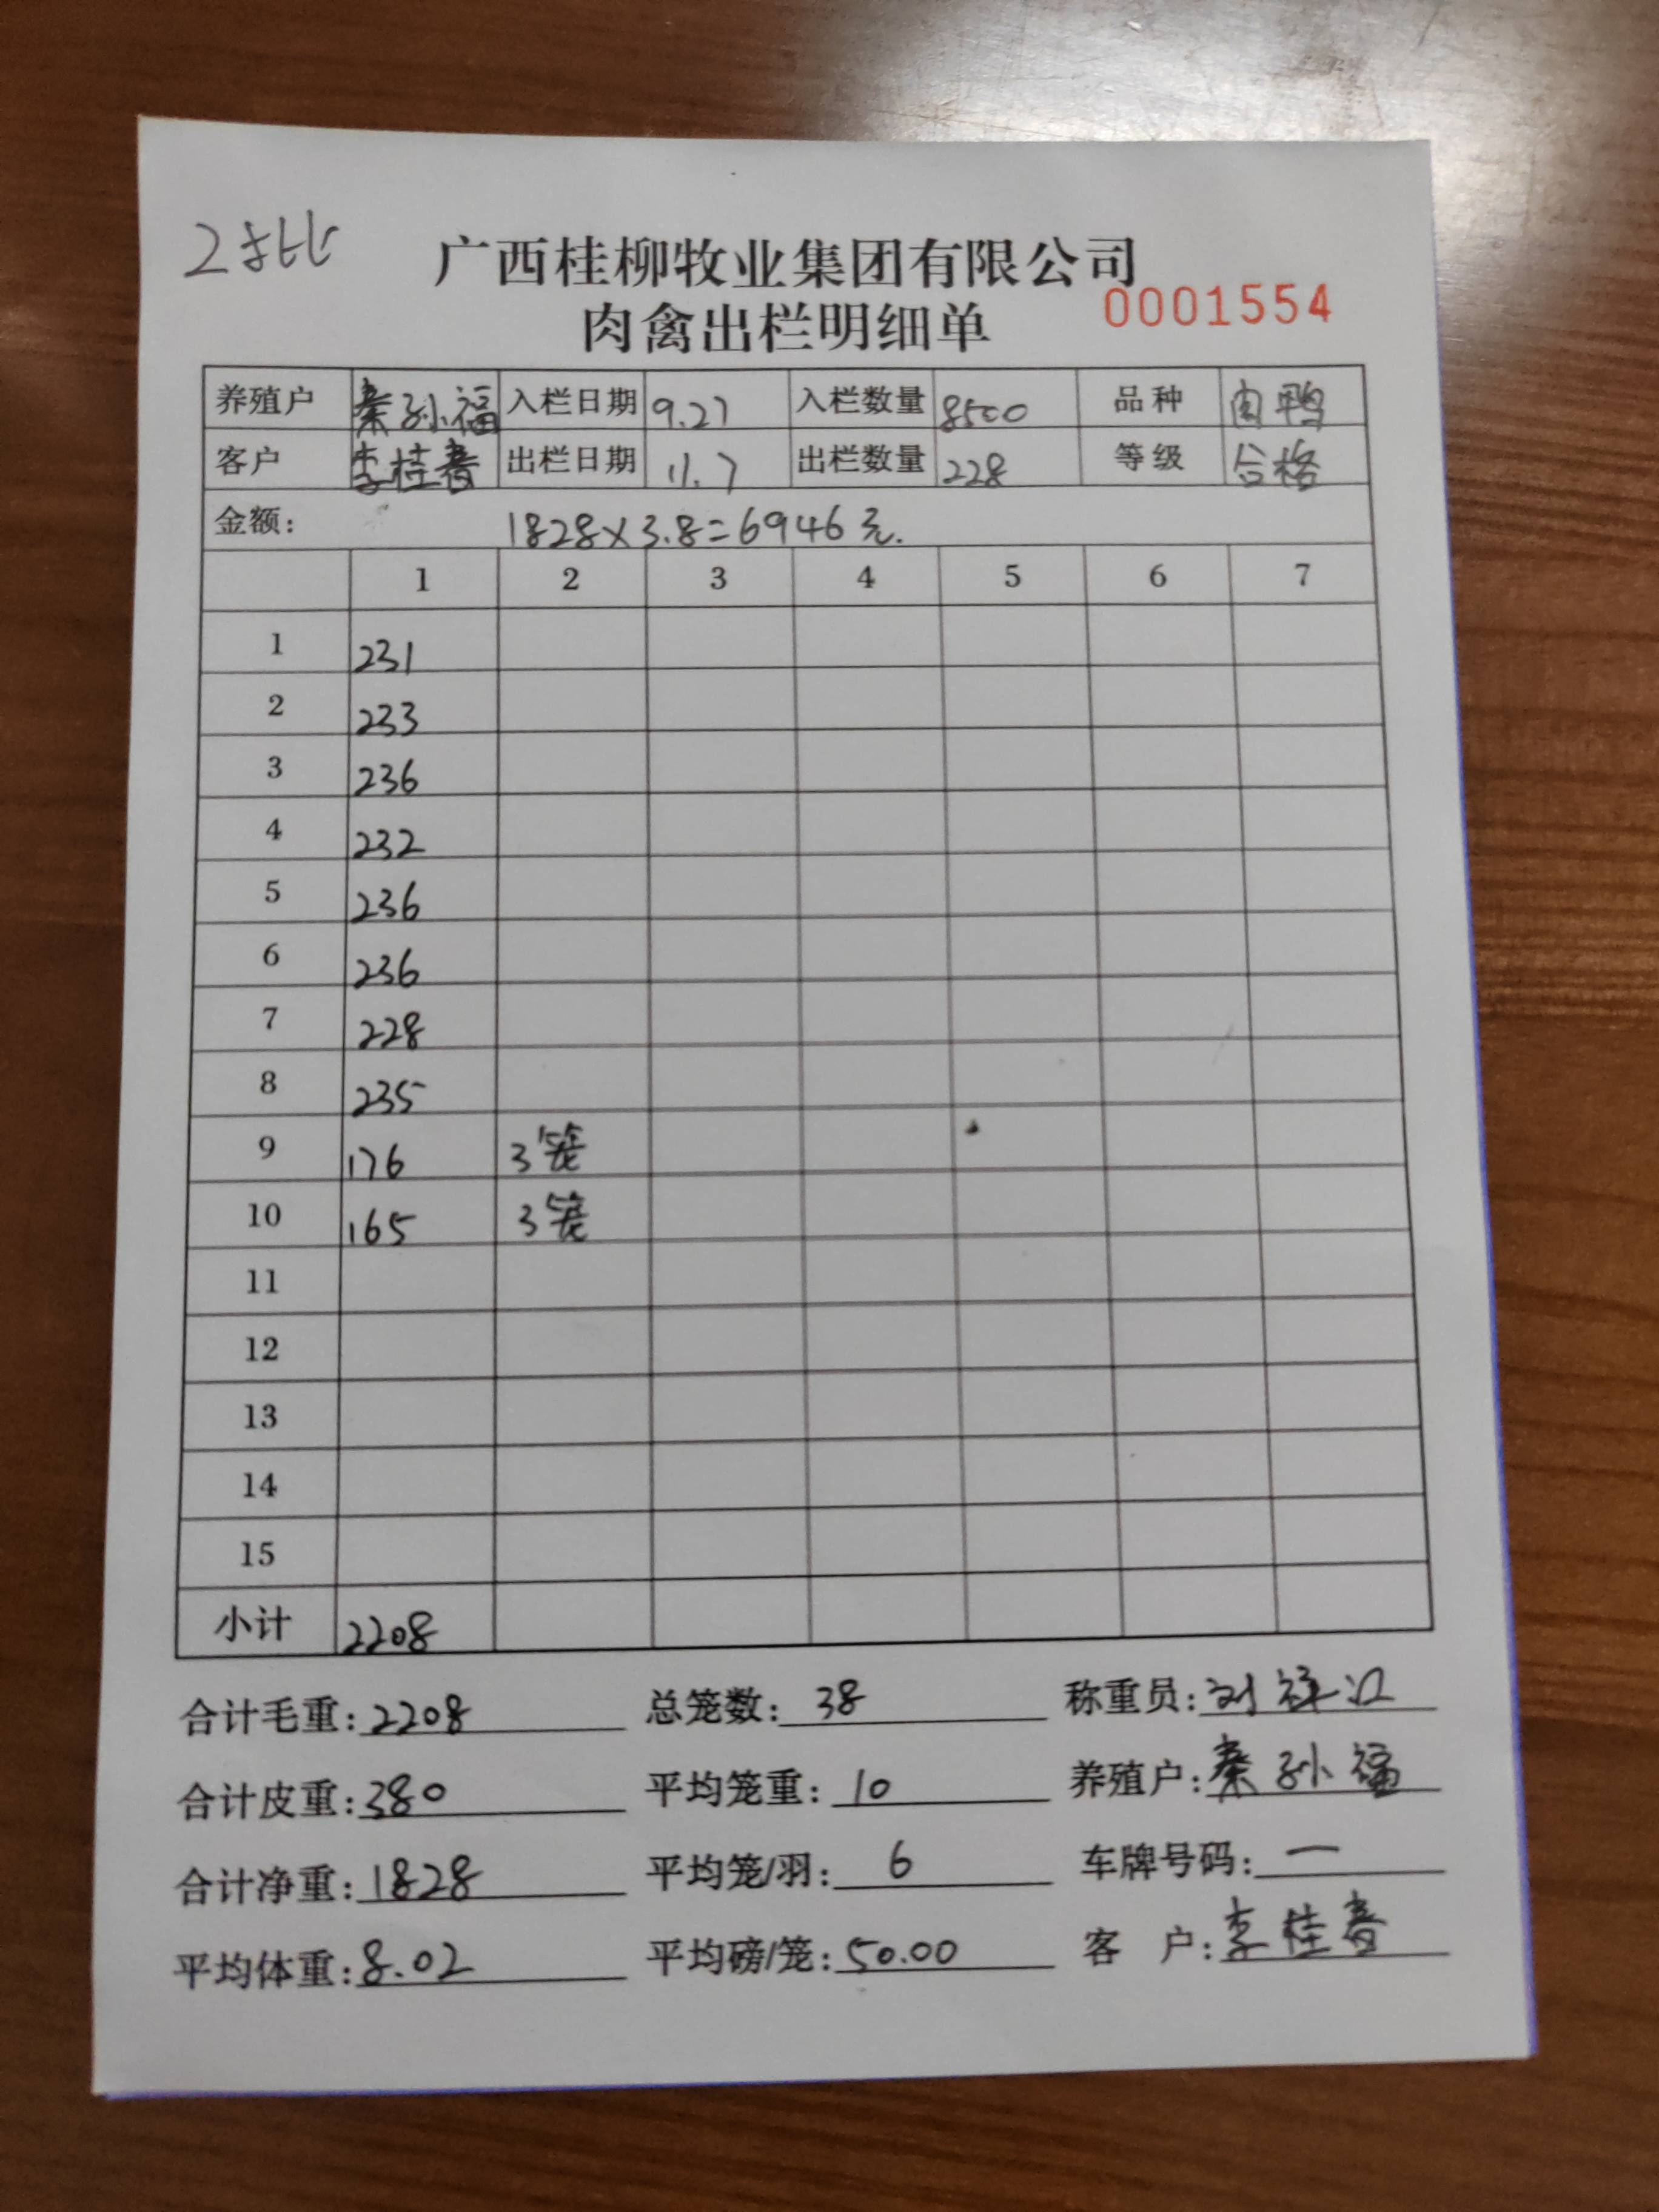 2批
广西桂柳牧业集团有限公司
肉禽出栏明细单 0001554
养殖户 秦孙福 入栏日期 9.27 入栏数量 8500 品种 肉鸭
客户 李桂春 出栏日期 11.7 出栏数量 228 等级 合格
金额: 1828×3.8=6946元.
1 2 3 4 5 6 7
1 231
2 233
3 236
4 232
5 236
6 236
7 228
8 235
9 176 3笼
10 165 3笼
11
12
13
14
15
小计 2208
合计毛重: 2208 总笼数: 38 称重员: 刘
合计皮重: 380 平均笼重: 10 养殖户: 秦孙福
合计净重: 1828 平均笼/羽: 6 车牌号码: 一
平均体重: 8.02 平均磅/笼: 50.00 客 户: 李桂春